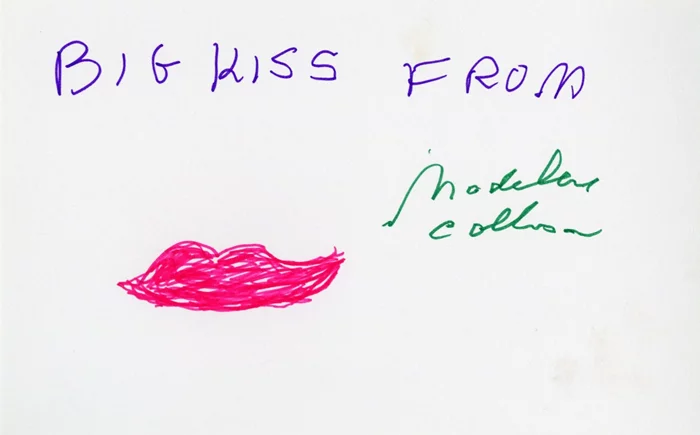 BIG KISS FROM
Madeleine
Collinson